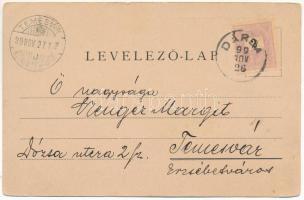 TEMESVÁR
LEVELEZŐ-LAP
DÁRDA
99
NOV
26
Ő nagysága
Wenger Margit
Dózsa utcza 2 sz.
Temesvár
Erzsébetváros